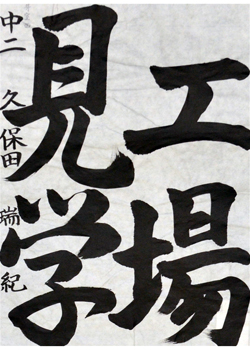 工場
見学
中二 久保田 瑞紀